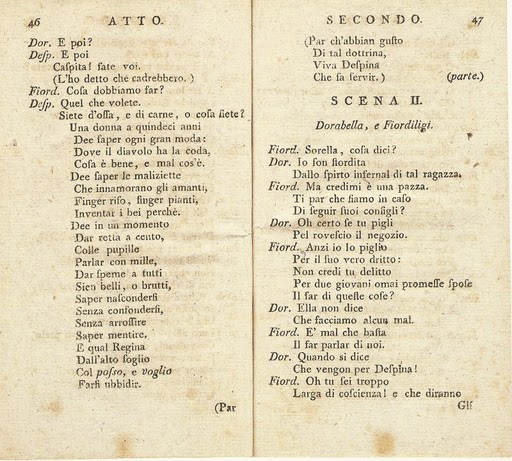 46 ATTO.
Dor. E poi?
Deſp. E poi
Caſpita! fate voi.
(L'ho detto che cadrebbero.)
Fiord. Coſa dobbiamo far?
Deſp. Quel che volete.
Siete d'oſſa, e di carne, o coſa ſiete?
Una donna a quindeci anni
Dee ſaper ogni gran moda:
Dove il diavolo ha la coda,
Coſa è bene, e mal cos'è.
Dee ſaper le maliziette
Che innamorano gli amanti,
Finger riſo, finger pianti,
Inventar i bei perchè.
Dee in un momento
Dar retta a cento,
Colle pupille
Parlar con mille,
Dar ſpeme a tutti
Sien belli, o brutti,
Saper naſconderſi
Senza confonderſi,
Senza arroſſire
Saper mentire,
E qual Regina
Dall'alto ſoglio
Col poſſo, e voglio
Farſi ubbidir.
(Par
SECONDO. 47
(Par ch'abbian guſto
Di tal dottrina,
Viva Deſpina
Che ſa ſervir.) (parte.)
SCENA II.
Dorabella, e Fiordiligi.
Fiord. Sorella, coſa dici?
Dor. Io ſon ſtordita
Dallo ſpirto infernal di tal ragazza.
Fiord. Ma credimi è una pazza.
Ti par che ſiamo in caſo
Di ſeguir ſuoi conſigli?
Dor. Oh certo ſe tu pigli
Pel roveſcio il negozio.
Fiord. Anzi io lo piglio
Per il ſuo vero dritto:
Non credi tu delitto
Per due giovani omai promeſſe ſpoſe
Il far di queſte coſe?
Dor. Ella non dice
Che facciamo alcun mal.
Fiord. E' mal che baſta
Il far parlar di noi.
Dor. Quando si dice
Che vengon per Deſpina!
Fiord. Oh tu ſei troppo
Larga di coſcienza! e che diranno
Gli